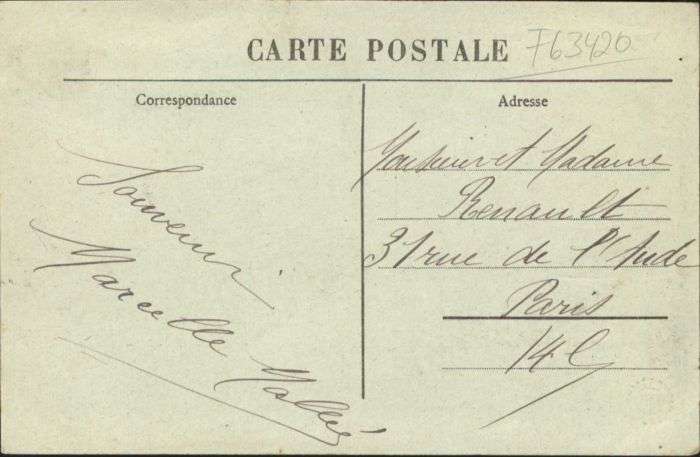 CARTE POSTALE
F63420
Correspondance
Souvenir
Marcelle
Adresse
Monsieur et Madame
Renault
31 rue de l'Aude
Paris
14e